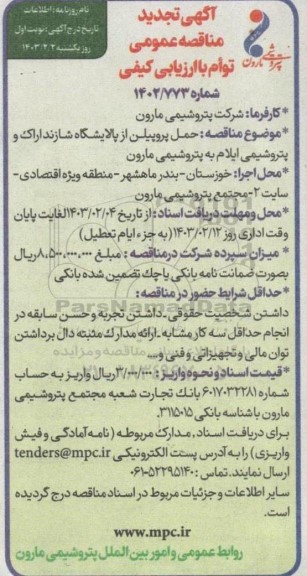 نام روزنامه: اطلاعات
تاریخ درج آگهی: نوبت اول
روز یکشنبه ۱۴۰۳/۲/۲
آگهی تجدید
مناقصه عمومی
توأم با ارزیابی کیفی
پتروشیمی مارون
شماره ۱۴۰۲/۷۷۳
*کارفرما: شرکت پتروشیمی مارون
*موضوع مناقصه: حمل پروپیلن از پالایشگاه شازند اراک و
پتروشیمی ایلام به پتروشیمی مارون
*محل اجرا: خوزستان-بندر ماهشهر-منطقه ویژه اقتصادی-
سایت ۲-مجتمع پتروشیمی مارون
*محل ومهلت دریافت اسناد: از تاریخ ۱۴۰۳/۰۲/۰۴ لغایت پایان
وقت اداری روز ۱۴۰۳/۰۲/۱۲ (به جزء ایام تعطیل)
* میزان سپرده شرکت درمناقصه : مبلغ ۸,۵۰۰,۰۰۰,۰۰۰ریال
بصورت ضمانت نامه بانکی یا چک تضمین شده بانکی
*حداقل شرایط حضور در مناقصه:
داشتن شخصیت حقوقی ـ داشتن تجربه و حسن سابقه در
انجام حداقل سه کار مشابه ـ ارائه مدارک مثبته دال برداشتن
توان مالی و تجهیزاتی و فنی و....
*قیمت اسناد و نحوه واریز: ۳/۰۰۰/۰۰۰ریال واریز به حساب
شماره ۶۰۱۷۰۳۲۲۸۱ بانک تجارت شعبه مجتمع پتروشیمی
مارون با شناسه بانکی ۳۱۱۵۰۱۵.
برای دریافت اسناد , مدارک مربوطه ( نامه آمادگی و فیش
واریزی) را به آدرس پست الکترونیکی tenders@mpc.ir
ارسال نمایند. تماس : ۰۶۱-۵۲۲۹۵۱۴۰
سایر اطلاعات و جزئیات مربوط در اسناد مناقصه درج گردیده
است.
www.mpc.ir
روابط عمومی و امور بین الملل پتروشیمی مارون